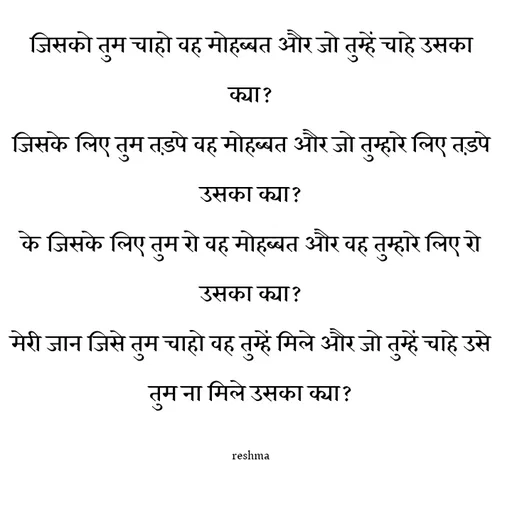 जिसको तुम चाहो वह मोहब्बत और जो तुम्हें चाहे उसका
क्या?
जिसके लिए तुम तड़पे वह मोहब्बत और जो तुम्हारे लिए तड़पे
उसका क्या?
के जिसके लिए तुम रो वह मोहब्बत और वह तुम्हारे लिए रो
उसका क्या?
मेरी जान जिसे तुम चाहो वह तुम्हें मिले और जो तुम्हें चाहे उसे
तुम ना मिले उसका क्या?
reshma